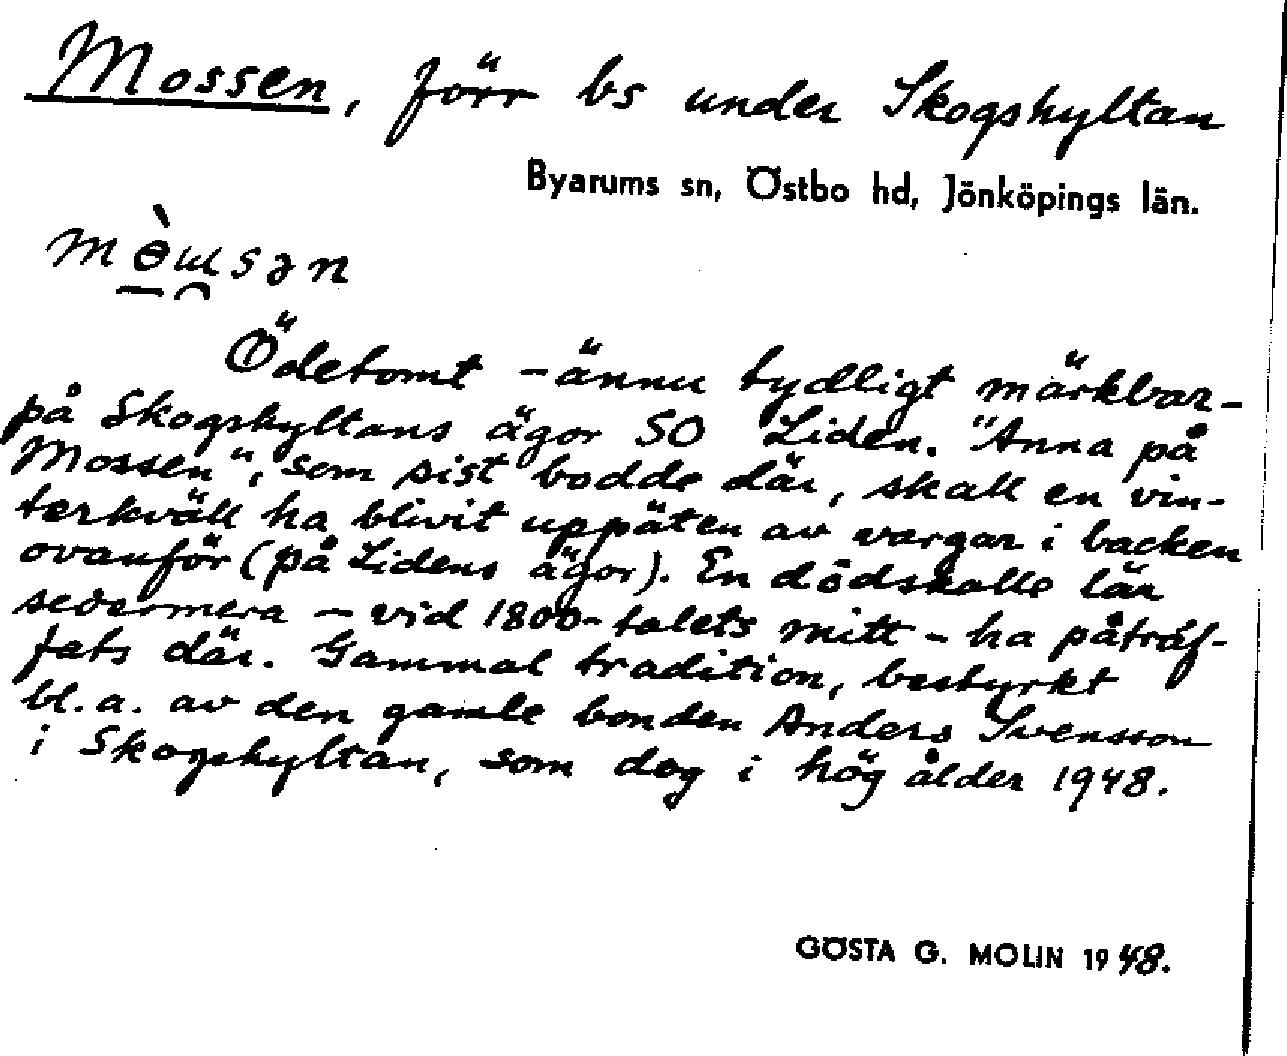 Mossen, förr bs under Skogshyltan
Byarums sn, Östbo hd, Jönköpings län.
mɵ̀ɯsən
Ödetomt – ännu tydligt märkbar –
på Skogshyltans ägor SO Liden. "Anna på
Mossen", som sist bodde där, skall en vin-
terkväll ha blivit uppäten av vargar i backen
ovanför (på Lidens ägor). En dödskalle lär
sedermera – vid 1800-talets mitt – ha påträf-
fats där. Gammal tradition, bestyrkt
bl.a. av den gamle bonden Anders Svensson
i Skogshyltan, som dog i hög ålder 1948.
GÖSTA G. MOLIN 1948.